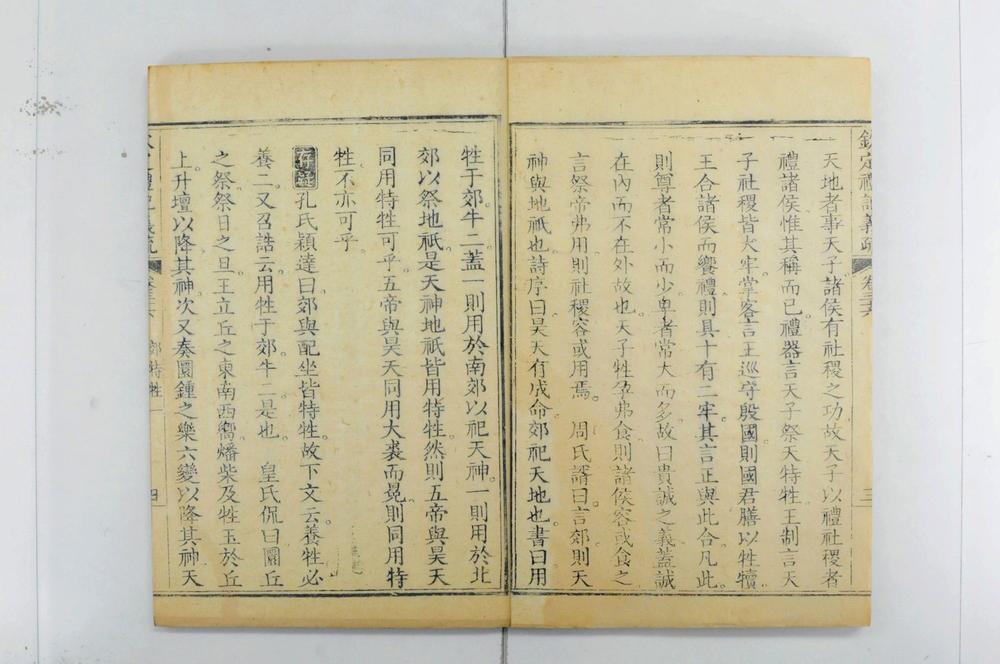 欽定禮記義疏 卷三十六 三
天地者事天子諸侯有社稷之功故天子以禮社稷者
禮諸侯惟其稱而已。禮器言天子祭天特牲。王制言天
子社稷皆大牢。掌客言王巡守殷國則國君膳以牲犢。
王合諸侯而饗禮則具十有二牢。其言正與此合凡此。
則尊者常小而少卑者常大而多。故曰貴誠之義蓋誠
在內而不在外故也。天子牲孕弗食則諸侯容或食之
言祭帝弗用。則社稷容或用焉。 周氏諝曰。言郊。則天
神與地祇也。詩序曰。昊天有成命郊祀天地也。書曰用
牲于郊。牛二蓋一則用於南郊以祀天神。一則用於北
郊以祭地祇。是天神地祇皆用特牲。然則五帝與昊天
同用特牲可乎。五帝與昊天同用大裘而冕。則同用特
牲不亦可乎
存疑 孔氏穎達曰。郊與配坐皆特牲。故下文云養牲必
養二。又召誥云用牲于郊。牛二。是也 皇氏侃曰圜丘
之祭。祭日之旦。王立丘之東南西嚮。燔柴及牲玉於丘
上。升壇以降其神次又奏圜鍾之樂六變以降其神天
郊特牲 四